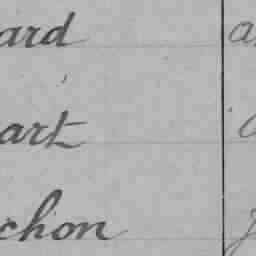 ard
art
chon